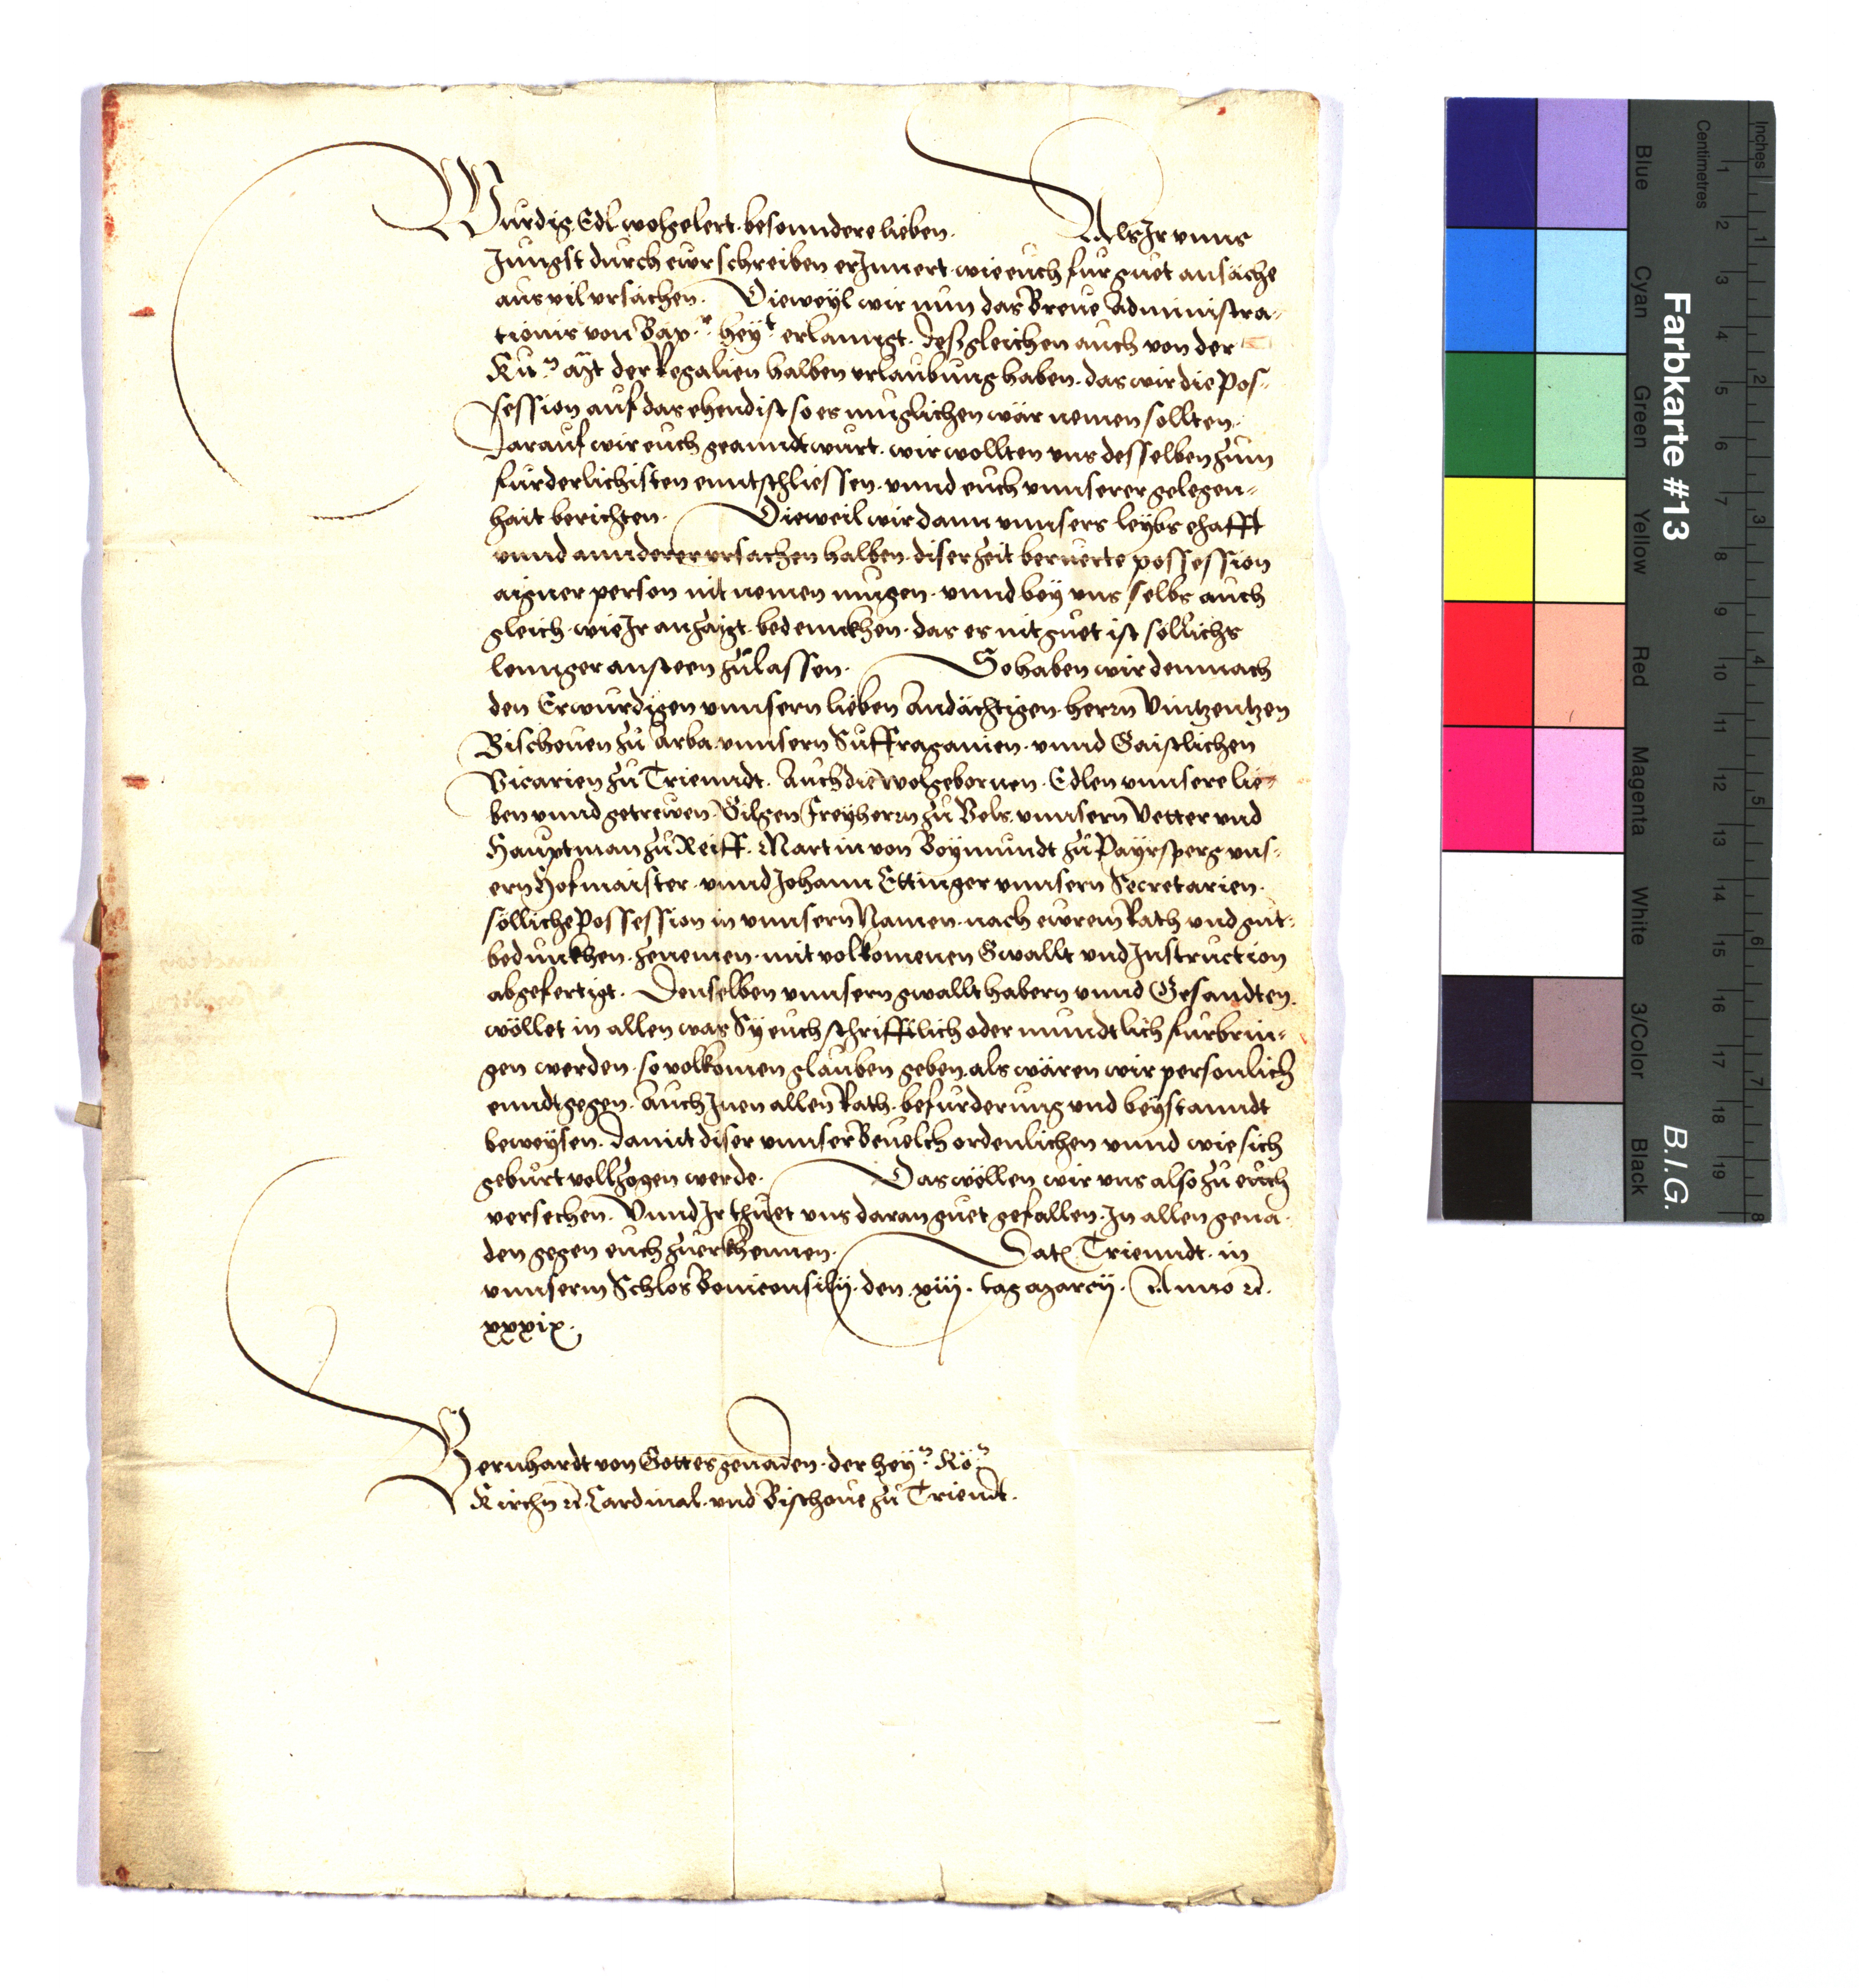 Wurdig Edl wolgelert besonndere lieben. Als Ir vnns
Jungst durch ewr schreiben erInnert. wie euch fur guet ansäche
aus vil vrsachen. Dieweyl wir nun das Breue Administra-
tionis von Bäp.r hey.t erlanngt. desgleichen auch von der
Ku.n Mt der Regalien halben erlaubung haben. das wir die Pos-
session auf das ehendist so es muglichen wär nemen sollten.
Darauf wir euch geanndtwurt. wir wollten vns desselben zum
furderlichisten enntschliessen. vnnd euch vnnserer gelegen-
hait berichten. Dieweil wir dann vnnsers leybs ehafft
vnnd annderer vrsachen halben. diser zeit beruerte possession
aigner person nit nemen mugen. vnnd bey vns selbs auch
gleich wie Ir anzaigt. bedennckhen. das es nit guet ist sollichs
lennger ansteen zulassen. So haben wir demnach
den Erwurdigen vnnsern lieben Andächtigen. herrn Vintzentzen
Bischouen zu Arba. vnnsern Suffraganien. vnnd Gaistlichen
Vicarien zu Trienndt. Auch die wolgebornen. Edlen vnnsere lie-
ben vnnd getrewen. Gilgen Freyherrn zu Vels. vnnsern Vetter vnd
Hauptman zu Reiff. Martin von Boymundt zu Payrsperg vns-
ern Hofmaister. vnnd Johann Ettinger vnnsern Secretarien.
sölliche Possession in vnnserm Namen. nach ewrem Rath vnd gut-
bedunckhen. zenemen. mit volkomenen Gwallt vnd Instruction
abgefertigt. Denselben vnnsern gwallthabern vnnd Gesandten.
wöllet in allen was Sy euch schrifftlich oder mundtlich furbrin-
gen werden. so volkomen glauben geben. als wären wir personlich
enndtgegen. Auch Inen allen Rath. befurderung vnd beystanndt
beweysen. damit diser vnnser Beuelch ordenlichen vnnd wie sich
geburt volzogen werde. Das wöllen wir vns also zu euch
versechen. Vnnd Ir thuet vns daran guet gefallen. In allen gena-
den gegen euch zuerkhennen. Dat. Trienndt. in
vnnserm Schlos Boniconsilij. den xiij. tag Marcij. Anno rc.
xxxix.
Bernhardt von Gottes genaden. der hey.n Rö.n
Kirchn rc. Cardinal. vnd Bischoue zu Triendt.
Inches
Centimetres
Farbkarte #13
B.I.G.
Blue
Cyan
Green
Yellow
Red
Magenta
White
3/Color
Black
1 2 3 4 5 6 7 8 9 10 11 12 13 14 15 16 17 18 19
1 2 3 4 5 6 7 8